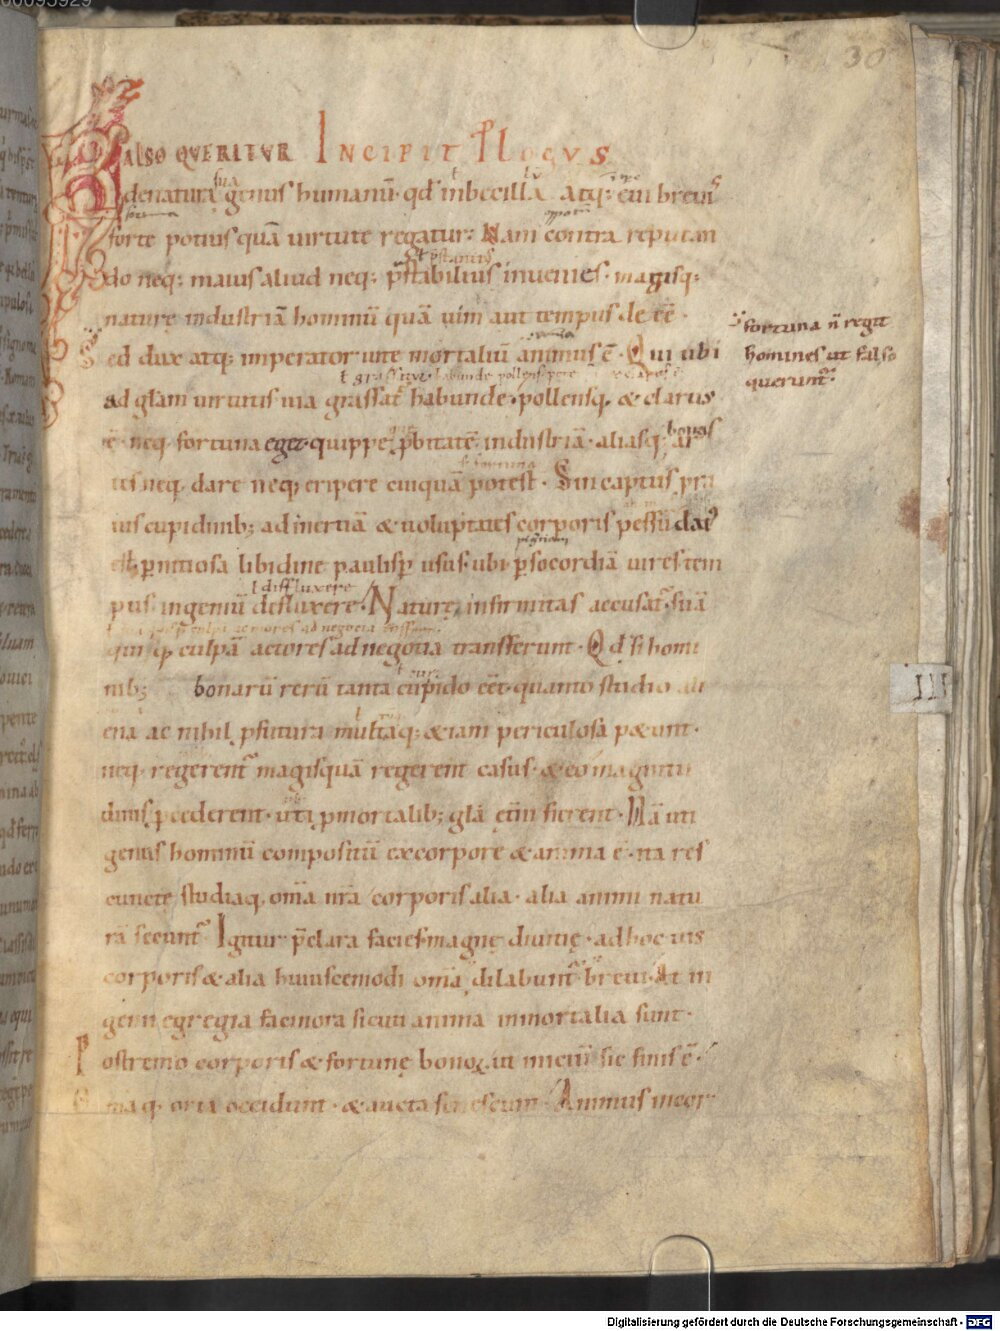 30
FALSO QVERITVR INCIPIT PLOGVS
denatura sua genus humanū· qđ inbecilla atq; eui breui᷒
forte potius quā uirtute regatur· Nam contra reputan
do neq; maius aliud neq; p̄stabilius inuenies· magisq;
naturę industriā hominū quā uim aut tempus deeē·
Sed dux atq; imperator uitę mortaliū animus ē· Qui ubi
ad glām uirtutis uia grassat᷒ habunde pollensq, & clarus
ē· neq, fortuna eget· quippe p̄bitatē industriā· aliasq; bonas ar
tis neq, dare neq; eripere cuiquā potest· Sin captus pra
uis cupidinib; ad inertiā & uoluptates corporis pessū dat᷒
est, p̱nitiosa libidine paulisp̱ usus· ubi p̱ socordiā uires tem
pus ingeniū defluxere· Naturę infirmitas accusat᷒· suā
ł diffluxere
quisq, culpā actores ad negotia transferunt· Qđ si homi
nib; bonarū rerū tanta cupido eēt· quanto studio ali
ena ac nihil p̱futura multaq; &iam periculosa p&unt·
neq, regerent᷒ magisquā regerent casus· & eo magnitu
dinis p̱cederent· uti p̱ mortalib; glā et̄ni fierent· Nā uti
genus hominū compositū ex corpore & anima ē· ita res
cunctę studiaq, om̄a nr̄a corporis alia· alia animi natu
rā secunt᷒· Igitur p̄clara facies· magnę diuitię· ad hoc uis
corporis & alia huiuscemodi om̄a dilabunt᷒ breui· At in
genii egregia facinora sicuti anima inmortalia sunt·
Postremo corporis & fortunę bonoꝝ ut iniciū sic finis ē·
Omaq, orta occidunt· & aucta senescunt· Animus incor
fortuna n̄ regit
homines ut falso
querunt᷒·
III
Digitalisierung gefördert durch die Deutsche Forschungsgemeinschaft - DFG